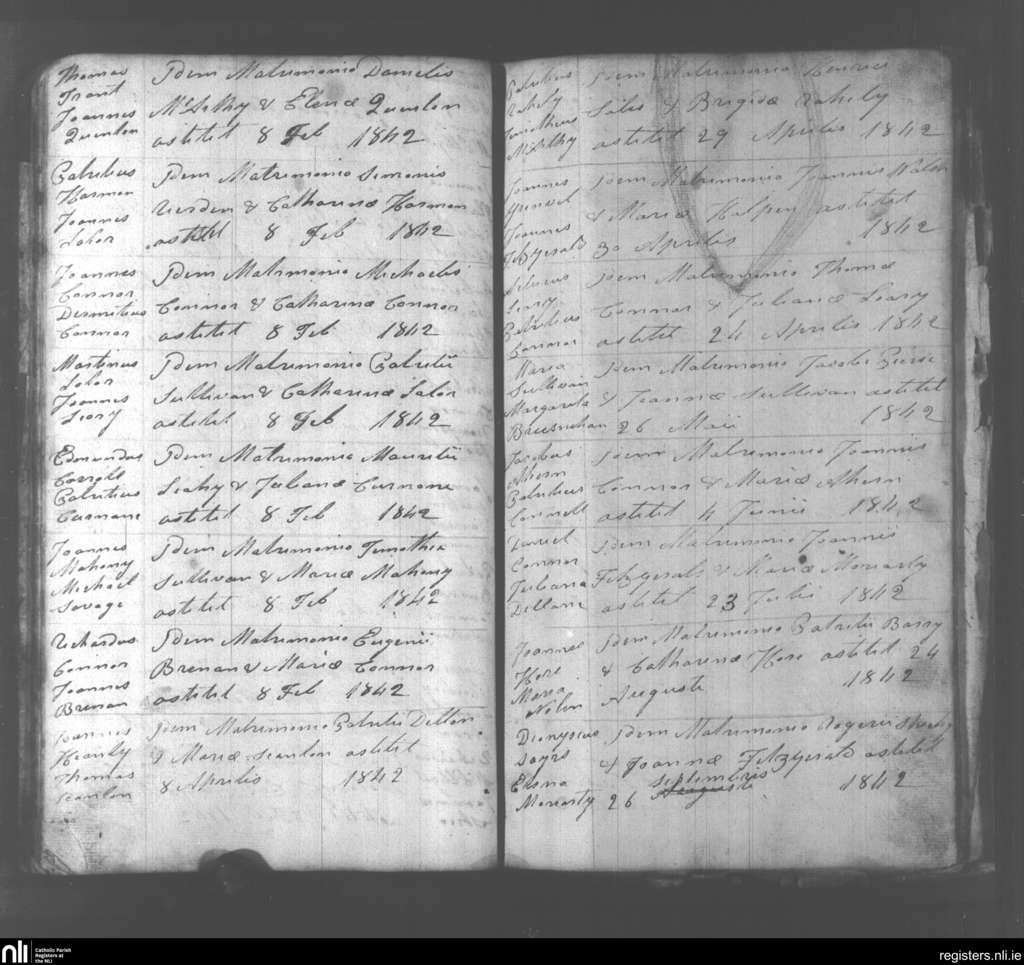 Thomas
Trant
Joannes
Quinlon
Idem Matrimonio Danielis
McArthy & Elenæ Quinlon
astitit 8 Feb 1842
Patritius
Harman
Joannes
Lalor
Idem Matrimonio Simonis
Rierden & Catharinæ Harman
astitit 8 Feb 1842
Joannes
Connor
Dermitius
Connor
Idem Matrimonio Michaelis
Connor & Catharinæ Connor
astitit 8 Feb 1842
Martinus
Lalor
Joannes
Leary
Idem Matrimonio Patritii
Sullivan & Catharinæ Lalor
astitit 8 Feb 1842
Edmundus
Patritius
Curnane
Idem Matrimonio Mauritii
Leahy & Julianæ Curnane
astitit 8 Feb 1842
Joannes
Mahony
Michael
Savage
Idem Matrimonio Timothei
Sullivan & Mariæ Mahony
astitit 8 Feb 1842
Richardus
Connor
Joannes
Brenan
Idem Matrimonio Eugenii
Brenan & Mariæ Connor
astitit 8 Feb 1842
Joannes
Hanly
Thomas
Scanlon
Idem Matrimonio Patritii Dillon
& Mariæ Scanlon astitit
8 Aprilis 1842
Patritius
Rahily
Timotheus
McArthy
Idem Matrimonio Henrici
Siles & Brigidæ Rahily
astitit 29 Aprilis 1842
Joannes
Joannes
Fitzgerald
Idem Matrimonio Joannis
& Mariæ Halpin astitit
30 Aprilis 1842
Silvius
Patritius
Connor
Idem Matrimonio Thomæ
Connor & Julianæ Leary
astitit 24 Aprilis 1842
Maria
Sullivan
Margarita
Bresnehan
Idem Matrimonio Jacobi Pierse
& Joannæ Sullivan astitit
26 Maii 1842
Jacobus
Ahern
Patritius
Connell
Idem Matrimonio Joannis
Connor & Mariæ Ahern
astitit 4 Junii 1842
Daniel
Connor
Juliana
Dillane
Idem Matrimonio Joannis
Fitzgerald & Mariæ Moriarty
astitit 23 Julii 1842
Joannes
Hore
Maria
Nolan
Idem Matrimonio Patritii Barry
& Catharinæ Hore astitit 24
Augusti 1842
Dionysius
Elena
Moriarty
Idem Matrimonio Rogerii Sheehy
& Joannæ Fitzgerald astitit
Septembris
26 Augusti 1842
nli
Catholic Parish
Registers at
the NLI
registers.nli.ie